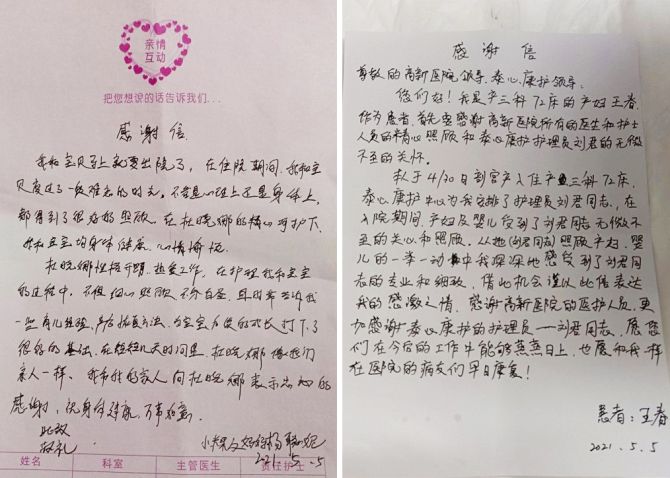 亲情
互动
把您想说的话告诉我们...
感谢信
我和宝贝马上就要出院了，在住院期间，我和宝
贝度过了一段难忘的时光。不管是心理上还是身体上，
都得到了很好的照顾。在杜晓娜的精心呵护下，
我和宝宝的身体健康、心情愉悦。
杜晓娜性格开朗，热爱工作，在护理我和宝宝
的过程中，不但细心照顾
一些育儿经验，产后恢复方法，为宝宝今后的成长打下了
很好的基础，在短短几天时间里，杜晓娜像我们
亲人一样。我和我的家人向杜晓娜表示忠心的
感谢，祝身体健康，万事如意。
此致
敬礼
2021.5.5
姓名 科室 主管医生 责任护士
感谢信
尊敬的高新医院领导、泰心康护领导：
您们好！我是产三科72床的产妇王春，
作为患者，首先要感谢高新医院所有的医生和护士
人员的精心照顾和泰心康护护理员刘君的无微
不至的关怀。
我于4/30日到宫产入住产三科72床，
泰心康护中心为我安排了护理员刘君同志，在
入院期间，产妇及婴儿受到了刘君同志无微不
至的关心和照顾。从她(刘君同志)照顾产妇、婴
儿的一举一动中我深深地感受到了刘君同
志的专业和细致，借此机会谨以此信表达
我的感激之情，感谢高新医院的医护人员，更
加感谢泰心康护的护理员——刘君同志，愿您
们在今后的工作中能够蒸蒸日上，也愿和我一样
在医院的病友们早日康复！
患者：王春
2021.5.5